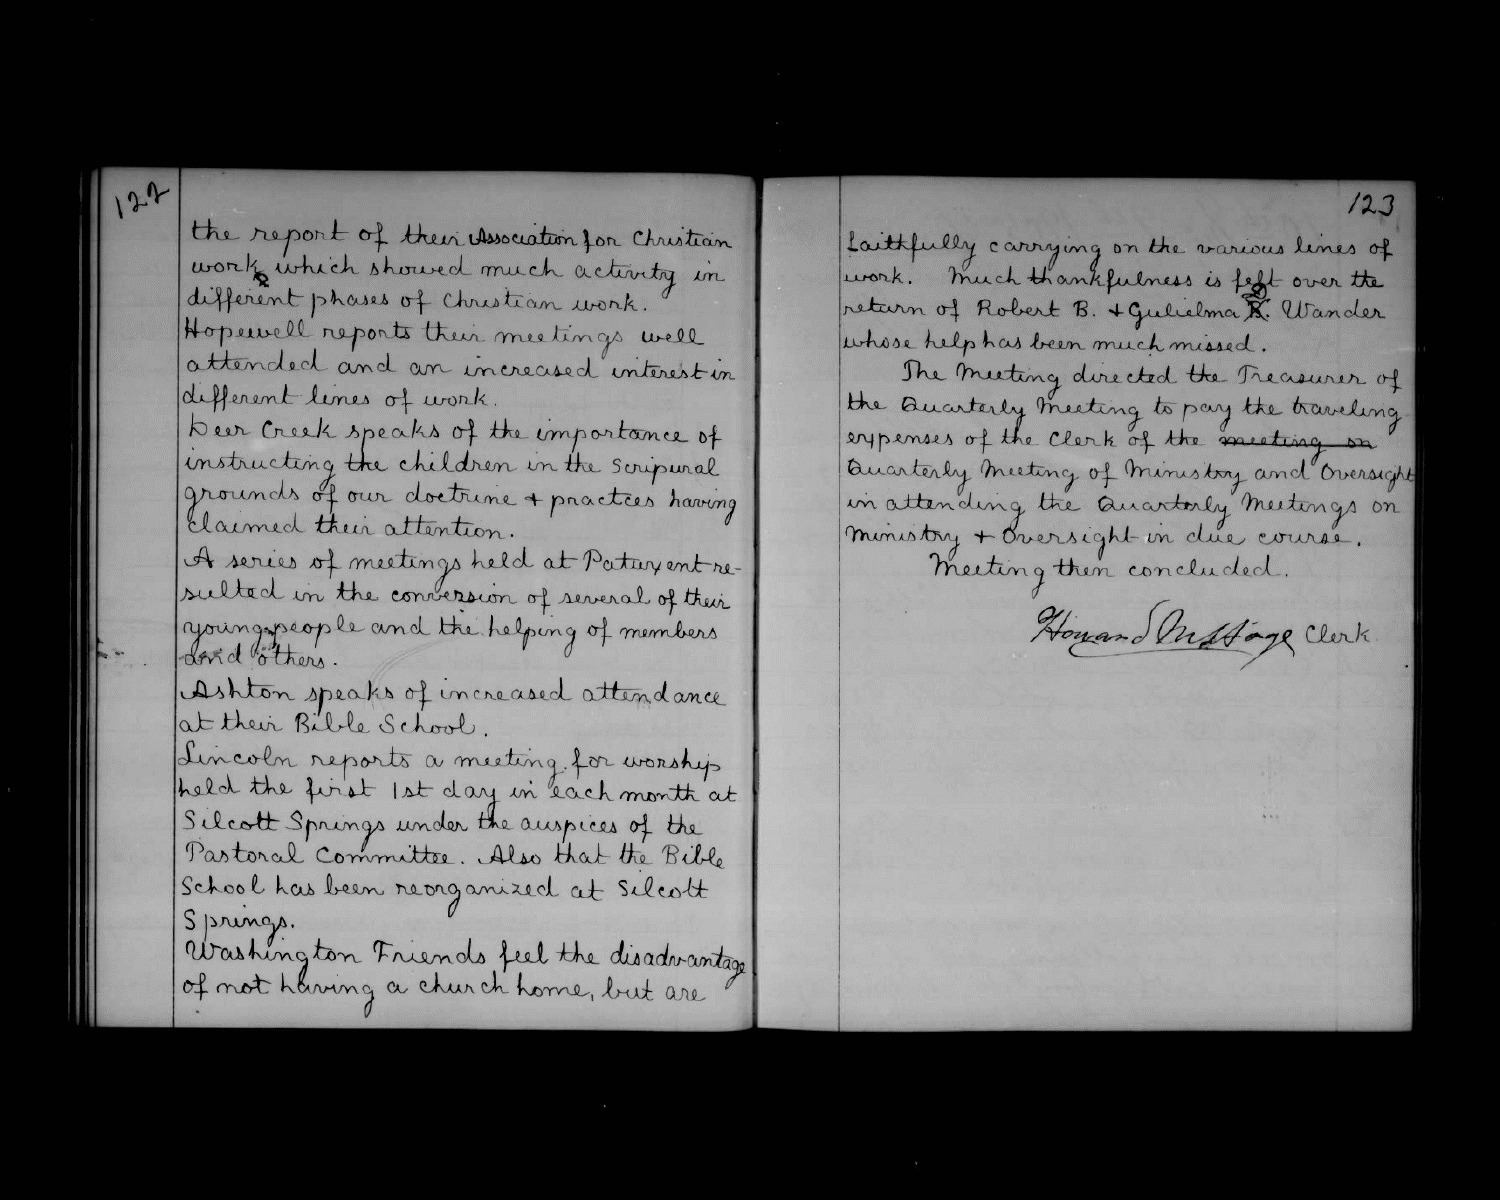 122
the report of their Association for Christian
work, which showed much activity in
different phases of Christian work.
Hopewell reports their meetings well
attended and an increased interest in
different lines of work.
Deer Creek speaks of the importance of
instructing the children in the Scripural
grounds of our doctrine + practces having
claimed their attention.
A series of meetings held at Patuxent re-
sulted in the conversion of several of their
young people and the helping of members
and others.
Ashton speaks of increased attendance
at their Bible School.
Lincoln reports a meeting for worship
held the first 1st day in each month at
Silcott Springs under the auspices of the
Pastoral Committee. Also that the Bible
School has been reorganized at Silcott
Springs.
Washington Friends feel the disadvantage
of not having a church home, but are
123
faithfully carrying on the various lines of
work. Much thankfulness is felt over the
return of Robert B. + Gulielma D. Wander
whose help has been much missed.
The Meeting directed the Treasurer of
the Quarterly Meeting to pay the traveling
expenses of the Clerk of the meeting on
Quarterly Meeting of Ministry and Oversight
in attending the Quarterly Meetings on
Ministry + Oversight in due course.
Meeting then concluded.
Howard Clerk